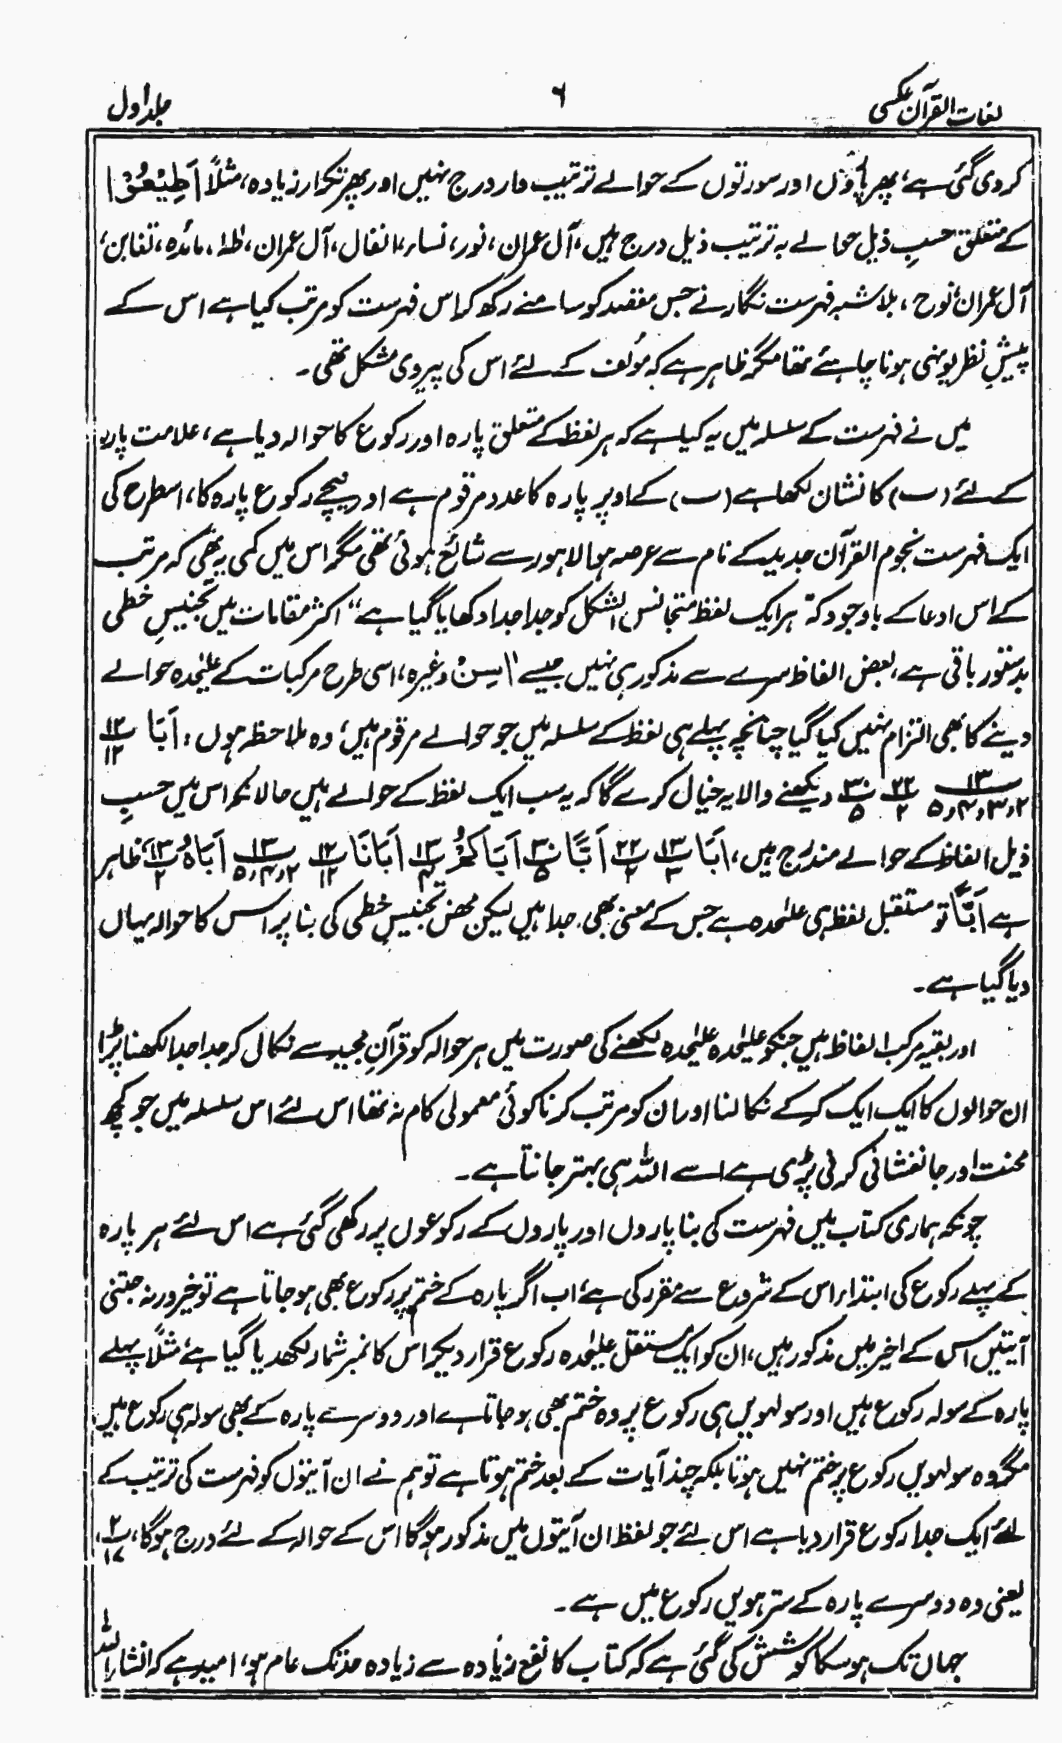 لغات القرآن عکسی
۶
جلد اول
کردی گئی ہے، پھر پاروں اور سورتوں کے حوالے ترتیب وار درج نہیں اور پھر تکرار زیادہ، مثلاً اَطِیْعُوْا
کے متعلق حسبِ ذیل حوالے بہ ترتیب ذیل درج ہیں، آل عمران، نور، نساء، انفال، آل عمران، طٰہٰ، مائدہ، تغابن،
آل عمران، نوح، بلاشبہ فہرست نگار نے جس مقصد کو سامنے رکھ کر اس فہرست کو مرتب کیا ہے اس کے
پیشِ نظر یونہی ہونا چاہئے تھا مگر ظاہر ہے کہ مؤلف کے لئے اس کی پیروی مشکل تھی۔
میں نے فہرست کے سلسلہ میں یہ کیا ہے کہ ہر لفظ کے متعلق پارہ اور رکوع کا حوالہ دیا ہے، علامت پارہ
کے لئے (پ) کا نشان لکھا ہے (پ) کے اوپر پارہ کا عدد مرقوم ہے اور نیچے رکوع پارہ کا، اسطرح کی
ایک فہرست نجوم القرآن جدید کے نام سے عرصہ ہوا لاہور سے شائع ہوئی تھی مگر اس میں کمی یہ تھی کہ مرتب
کے اس ادعا کے باوجود کہ "ہر ایک لفظ متجانس الشکل کو جدا جدا دکھایا گیا ہے" اکثر مقامات میں تجنیسِ خطی
بدستور باقی ہے، بعض الفاظ سرے سے مذکور ہی نہیں جیسے اٰسِنٍ وغیرہ، اسی طرح مرکبات کے علیٰحدہ حوالے
دینے کا بھی التزام نہیں کیا گیا چنانچہ پہلے ہی لفظ کے سلسلہ میں جو حوالے مرقوم ہیں، وہ ملاحظہ ہوں: اَبَا پ۱۲/۱۲
پ۱۳/۲،۳،۴،۵ پ۲۲/۲ پ۳۰/۵ دیکھنے والا یہ خیال کرے گا کہ یہ سب ایک لفظ کے حوالے ہیں حالانکہ اس میں حسبِ
ذیل الفاظ کے حوالے مندرج ہیں، اَبَا پ۱۳/۳ پ۲۲/۲ اَبًّا پ۳۰/۵ اَبَاکُمْ پ۱۳/۴ اَبَانَا پ۱۲/۱۲ پ۱۳/۲،۴،۵ اَبَاہُ پ۱۳/۲ ظاہر
ہے اَبًّا تو مستقبل لفظ ہی علیٰحدہ ہے جس کے معنی بھی جدا ہیں لیکن محض تجنیسِ خطی کی بنا پر اس کا حوالہ یہاں
دیا گیا ہے۔
اور بقیہ مرکب الفاظ ہیں جنکو علیٰحدہ علیٰحدہ لکھنے کی صورت میں ہر حوالہ کو قرآنِ مجید سے نکال کر جدا جدا لکھنا پڑا
ان حوالوں کا ایک ایک کر کے نکالنا اور ان کو مرتب کرنا کوئی معمولی کام نہ تھا اس لئے اس سلسلہ میں جو کچھ
محنت اور جانفشانی کرنی پڑی ہے اسے اللہ ہی بہتر جانتا ہے۔
چونکہ ہماری کتاب میں فہرست کی بنا پاروں اور پاروں کے رکوعوں پر رکھی گئی ہے اس لئے ہر پارہ
کے پہلے رکوع کی ابتدا، اس کے شروع سے مقرر کی ہے، اب اگر پارہ کے ختم پر رکوع بھی ہو جاتا ہے تو خیر ورنہ جتنی
آیتیں اس کے اخیر میں مذکور ہیں، ان کو ایک مستقل علیٰحدہ رکوع قرار دیکر اس کا نمبر شمار لکھدیا گیا ہے، مثلاً پہلے
پارہ کے سولہ رکوع ہیں اور سولہویں ہی رکوع پر وہ ختم بھی ہو جاتا ہے اور دوسرے پارہ کے بھی سولہ ہی رکوع ہیں
مگر وہ سولہویں رکوع پر ختم نہیں ہوتا بلکہ چند آیات کے بعد ختم ہوتا ہے تو ہم نے ان آیتوں کو فہرست کی ترتیب کے
لئے ایک جدا رکوع قرار دیا ہے اس لئے جو لفظ ان آیتوں میں مذکور ہوگا اس کے حوالہ کے لئے درج ہوگا، پ۲/۱۷،
یعنی وہ دوسرے پارہ کے سترہویں رکوع میں ہے۔
جہاں تک ہو سکا کوشش کی گئی ہے کہ کتاب کا نفع زیادہ سے زیادہ حد تک عام ہو، امید ہے کہ انشاء اللہ